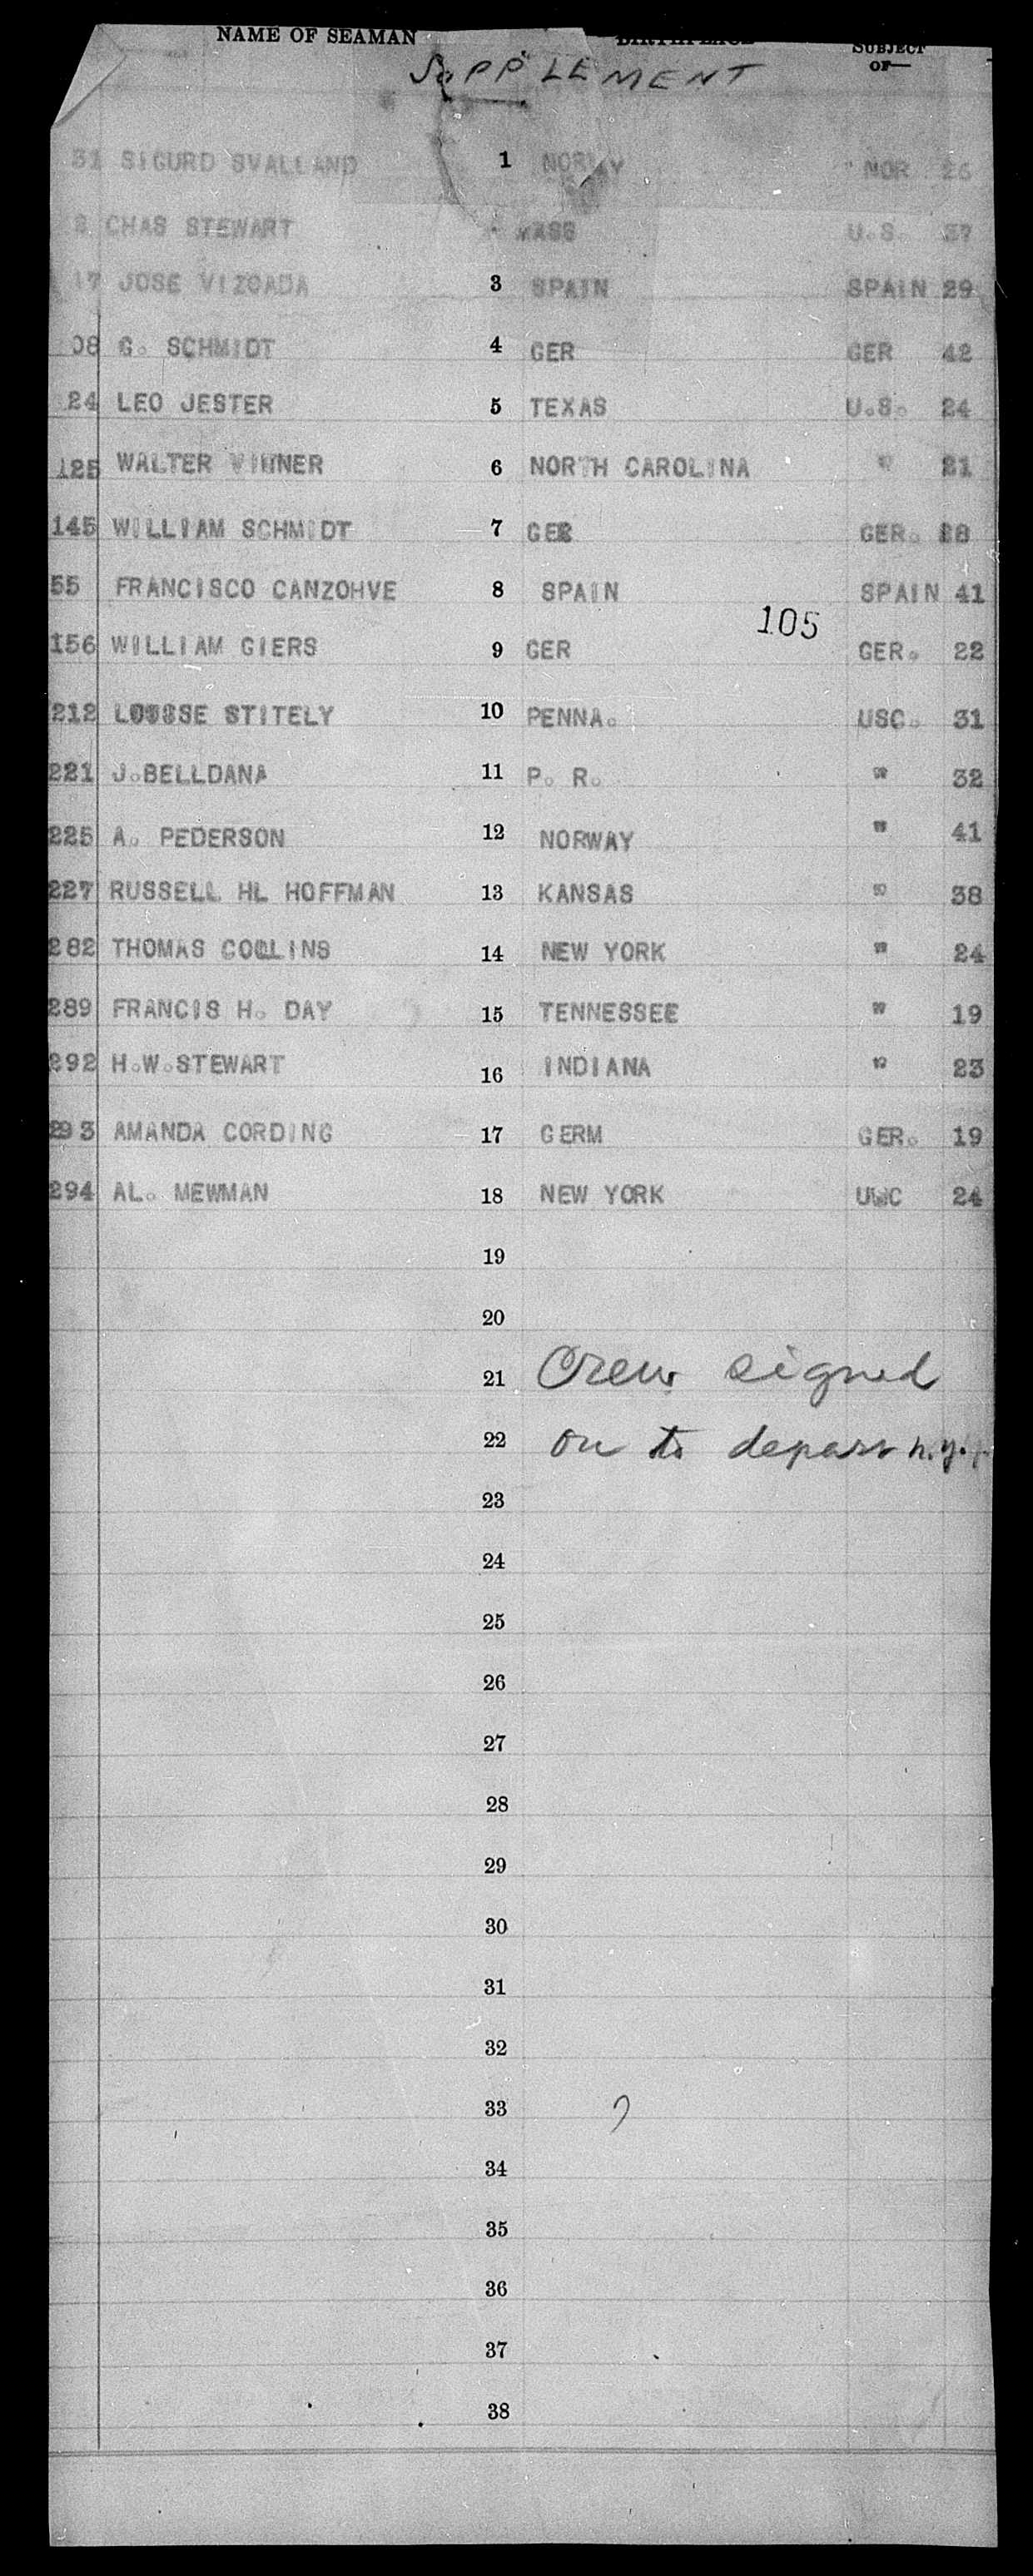 NAME OF SEAMAN BIRTHPLACE SUBJECT OF—
SUPPLEMENT
31 SIGURD SVALLAND 1 NORWAY NOR 26
CHAS STEWART MASS U.S. 37
17 JOSE VIZOADA 3 SPAIN SPAIN 29
08 G. SCHMIDT 4 GER GER 42
24 LEO JESTER 5 TEXAS U.S. 24
125 WALTER 6 NORTH CAROLINA " 21
145 WILLIAM SCHMIDT 7 GER GER. 28
55 FRANCISCO CANZOHVE 8 SPAIN SPAIN 41
105
156 WILLIAM GIERS 9 GER GER. 22
212 STITELY 10 PENNA. USC. 31
221 J.BELLDANA 11 P. R. " 32
225 A. PEDERSON 12 NORWAY " 41
227 RUSSELL HL HOFFMAN 13 KANSAS " 38
282 THOMAS COLLINS 14 NEW YORK " 24
289 FRANCIS H. DAY 15 TENNESSEE " 19
292 H.W.STEWART 16 INDIANA " 23
293 AMANDA CORDING 17 GERM GER. 19
294 AL. MEWMAN 18 NEW YORK UWC 24
19
20
21 Crew signed
22 on to depart n.y.
23
24
25
26
27
28
29
30
31
32
33
34
35
36
37
38